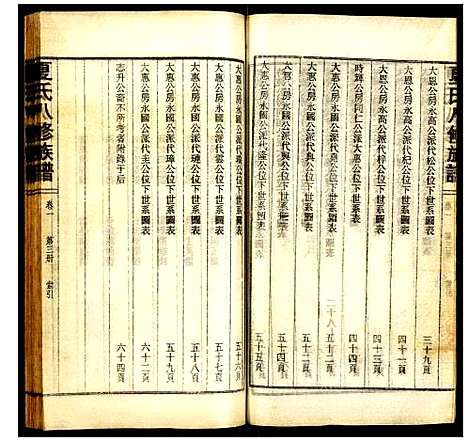 大惠公房永高公派代松公位下世系圖表 三十九頁
大恩公房永高公派代杞公位下世系圖表 四十一頁
大恩公房永高公派代梓公位下世系圖表 四十三頁
時輝公房同仁公派大惠公位下世系圖表 四十四頁
大惠公房永國公派代典公位下世系圖表 五十二頁
大惠公房永國公派代與公位下世系圖表 五十四頁
大惠公房永國公派代隆公位下世系圖表 五十五頁
大惠公房永國公派代雲公位下世系圖表 五十六頁
大惠公房永國公派代璉公位下世系圖表 五十七頁
大惠公房永國公派代璋公位下世系圖表 五十八頁
大惠公房永國公派代圭公位下世系圖表 五十九頁
六十二頁
志升公裔不所考者附錄于后 六十四頁
夏氏八修族譜
卷一 第三冊 索引